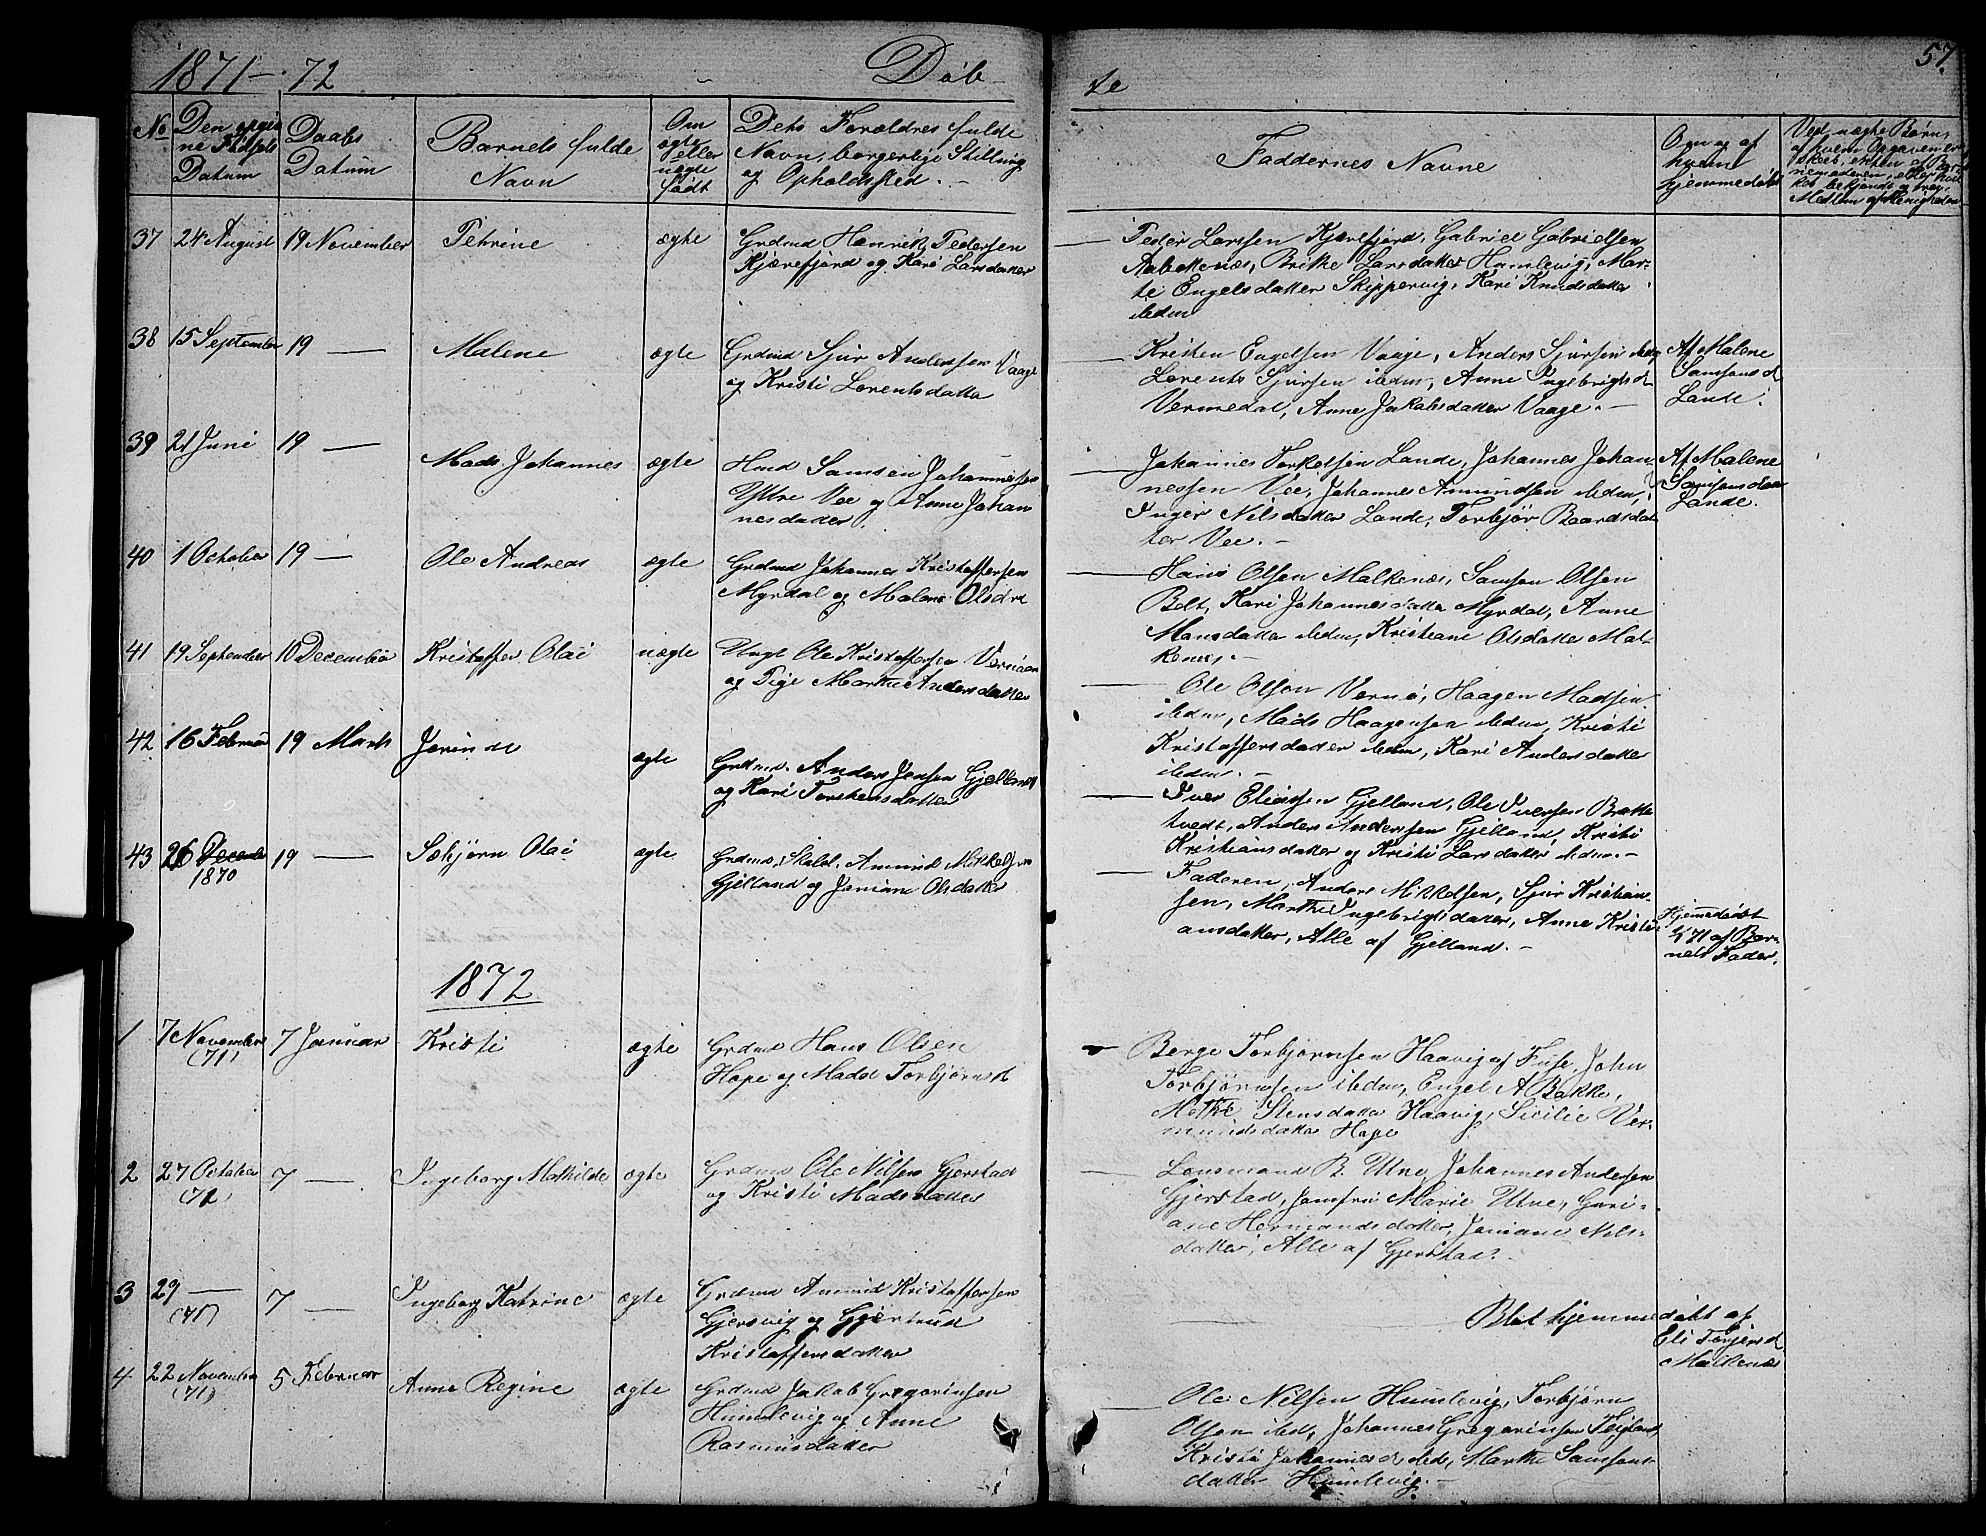 1871-72
Døb-
te
57.
No
Den opgiv
ne Fødsels
Datum
Daabs
Datum
Barnets fulde
Navn
Om
ægte
eller
uægte
født
Dets Forældres fulde
Navn, borgerlige Stilling
og Opholdsted.
Faddernes Navne
Om og af
hvem
hjemmedøbt
Ved uægte Børn,
af hvem Opgaven er
skeet, enten af Bar-
nemoderen, eller
bekjendt
Medlem af Menigheden
37
24 August
19 November
Petrine
ægte
Grdmd Henrik Pedersen
Kjærefjord og Kari Larsdatter
Peder Larssen Kjærefjord, Gabriel Gabrielsen
Aabekenæs, Britte Larsdatter Humlevig, Mar-
te Engelsdatter Skippervig, Kari Knudsdatter
ibidem
38
15 September
19 —
Malene
ægte
Grdmd Sjur Anderssen Vaage
og Kristi Lorentsdatter
Kristen Engelsen Vaage, Anders Sjursen ibidem,
Lorents Sjursen ibidem, Anne Ingebrigtsd
Vermedal, Anne Jakobsdatter Vaage.
Af Malene
Samsonsd
Lande.
39
21 Juni
19 —
Mads Johannes
ægte
Hmd Samsen Johannesen
Ytre Vee og Anne Johan
nesdatter.
Johannes Torkelsen Lande, Johannes Johan-
nessen Vee, Johannes Amundsen ibidem,
Inger Nilsdatter Lande, Torbjør Baardsdat
ter Vee.
Af Malene
Samsonsdatter
Lande.
40
1 October
19 —
Ole Andreas
ægte
Grdmd Johannes Kristoffersen
Myrdal og Malene Olsdtr
Hans Olsen Malkenæs, Samson Olsen
Bolt, Kari Johannesdatter Myrdal, Anne
Monsdatter ibidem, Kristiane Olsdatter Mal-
kenæs.
41
19 September
10 December
Kristoffer Olai
uægte
Ungk Ole Kristoffersen Vernøen
og Pige Marthe Andersdatter
Ole Olson Vernø, Haagen Madsen
ibidem, Mads Haagensen ibidem, Kristi
Kristoffersdatter ibidem, Kari Andersdatter
ibidem.
42
16 Februar
19 Marts
Jorinde
ægte
Grdmd. Anders Jensen Gjelland
og Kari Torstensdatter
Iver Eliassen Gjelland, Ole Iversen Bakke
tvedt, Anders Anderssen Gjelland, Kristi
Kristiansdatter og Kristi Larsdatter ibidem.
43
26 December
1870
19 —
Sæbjørn Olai
ægte
Grdmd, Skoleh. Amund Mikkelsen
Gjelland og Janiane Olsdatter
Faderen, Anders Mikkelsen, Sjur Kristian-
sen, Marthe Ingebrigtsdatter, Anne Kristi
ansdatter, Alle af Gjelland.
Hjemmedøbt
1/1 71 af Bar-
nets Fader.
1872
1
7 November
(71)
7 Januar
Kristi
ægte
Grdmd Hans Olsen
Hope og Mada Torbjørnsd
Berge Torbjørnsen Haavig af Fuse, John
Torbjørnsen ibidem, Engel A Bakke,
Mette Stensdatter Haavig, Sirilie Ver-
mundsdatter Hope
2
27 October
(71)
7 —
Ingeborg Mathilde
ægte
Grdmd Ole Nilsen Gjerstad
og Kristi Madsdatter
Lensmand B. Utne, Johannes Andersen
Gjerstad, Jomfru Marie Utne, Guri-
ane Hermandsdatter, Janiane Nils-
datter, Alle af Gjerstad.
3
29 —
(71)
7 —
Ingeborg Katrine
ægte
Grdmd Amund Kristoffersen
Gjersvig og Gjertrud
Kristoffersdatter
Blet hjemmedøbt af
Eli Torjersd
Malkenæs
4
22 November
(71)
5 Februar
Anne Regine
ægte
Grdmd Jakob Gregoriusen
Humlevig og Anne
Rasmusdatter
Ole Nilsen Humlevig, Torbjørn
Olson ibid, Johannes Gregoriusen Teigland,
Kristi Johannesd ibid, Marthe Samsons-
datter Humlevig.